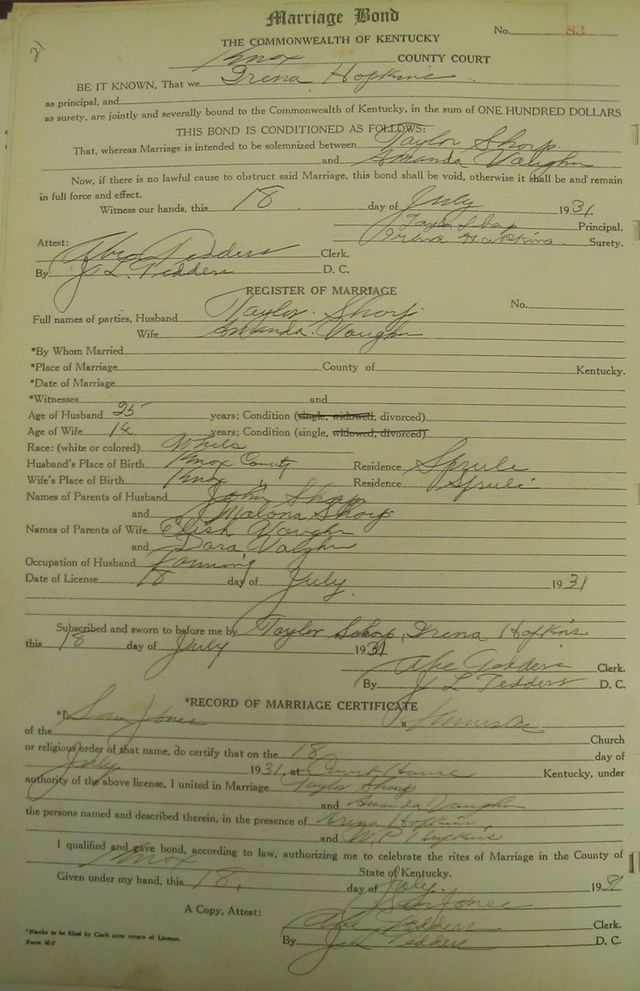 21
Marriage Bond
No. 83
THE COMMONWEALTH OF KENTUCKY
Knox COUNTY COURT
BE IT KNOWN, That we Irena Hopkins
as principal, and
as surety, are jointly and severally bound to the Commonwealth of Kentucky, in the sum of ONE HUNDRED DOLLARS
THIS BOND IS CONDITIONED AS FOLLOWS:
That, whereas Marriage is intended to be solemnized between Taylor Sharp
and Amanda Vaughn
Now, if there is no lawful cause to obstruct said Marriage, this bond shall be void, otherwise it shall be and remain
in full force and effect.
Witness our hands, this 18 day of July 1931.
Taylor Principal.
Attest: Hopkins. Surety.
Abe Tedders Clerk.
By J L Tedders D. C.
REGISTER OF MARRIAGE
No.
Full names of parties, Husband Taylor Sharp
Wife Amanda Vaughn
*By Whom Married
*Place of Marriage County of Kentucky.
*Date of Marriage
*Witnesses and
Age of Husband 25 years; Condition (single, widowed, divorced)
Age of Wife years; Condition (single, widowed, divorced)
Race: (white or colored) White
Husband's Place of Birth Knox County Residence Sprule
Wife's Place of Birth Knox " Residence Sprule
Names of Parents of Husband John Sharp
and Malona Sharp
Names of Parents of Wife Elish Vaughn
and Dara Vaughn
Occupation of Husband Farming
Date of License 18 day of July. 1931
Subscribed and sworn to before me by Taylor Sharp, Irena Hopkins
this 18 day of July 1931
Abe Tedders Clerk.
By J L Tedders D. C.
*RECORD OF MARRIAGE CERTIFICATE
*I Sam Jones a
of the Church
or religious order of that name, do certify that on the 18 day of
July 1931, at Court House Kentucky, under
authority of the above license, I united in Marriage Taylor Sharp
and Amanda Vaughn
the persons named and described therein, in the presence of Hopkins
and W. P. Hopkins
I qualified and gave bond, according to law, authorizing me to celebrate the rites of Marriage in the County of
Knox State of Kentucky.
Given under my hand, this 18. day of July. 1931
Sam Jones
A Copy, Attest: Abe Tedders Clerk.
By J L Tedders D. C.
*Blanks to be filled by Clerk after return of License.
Form M-7